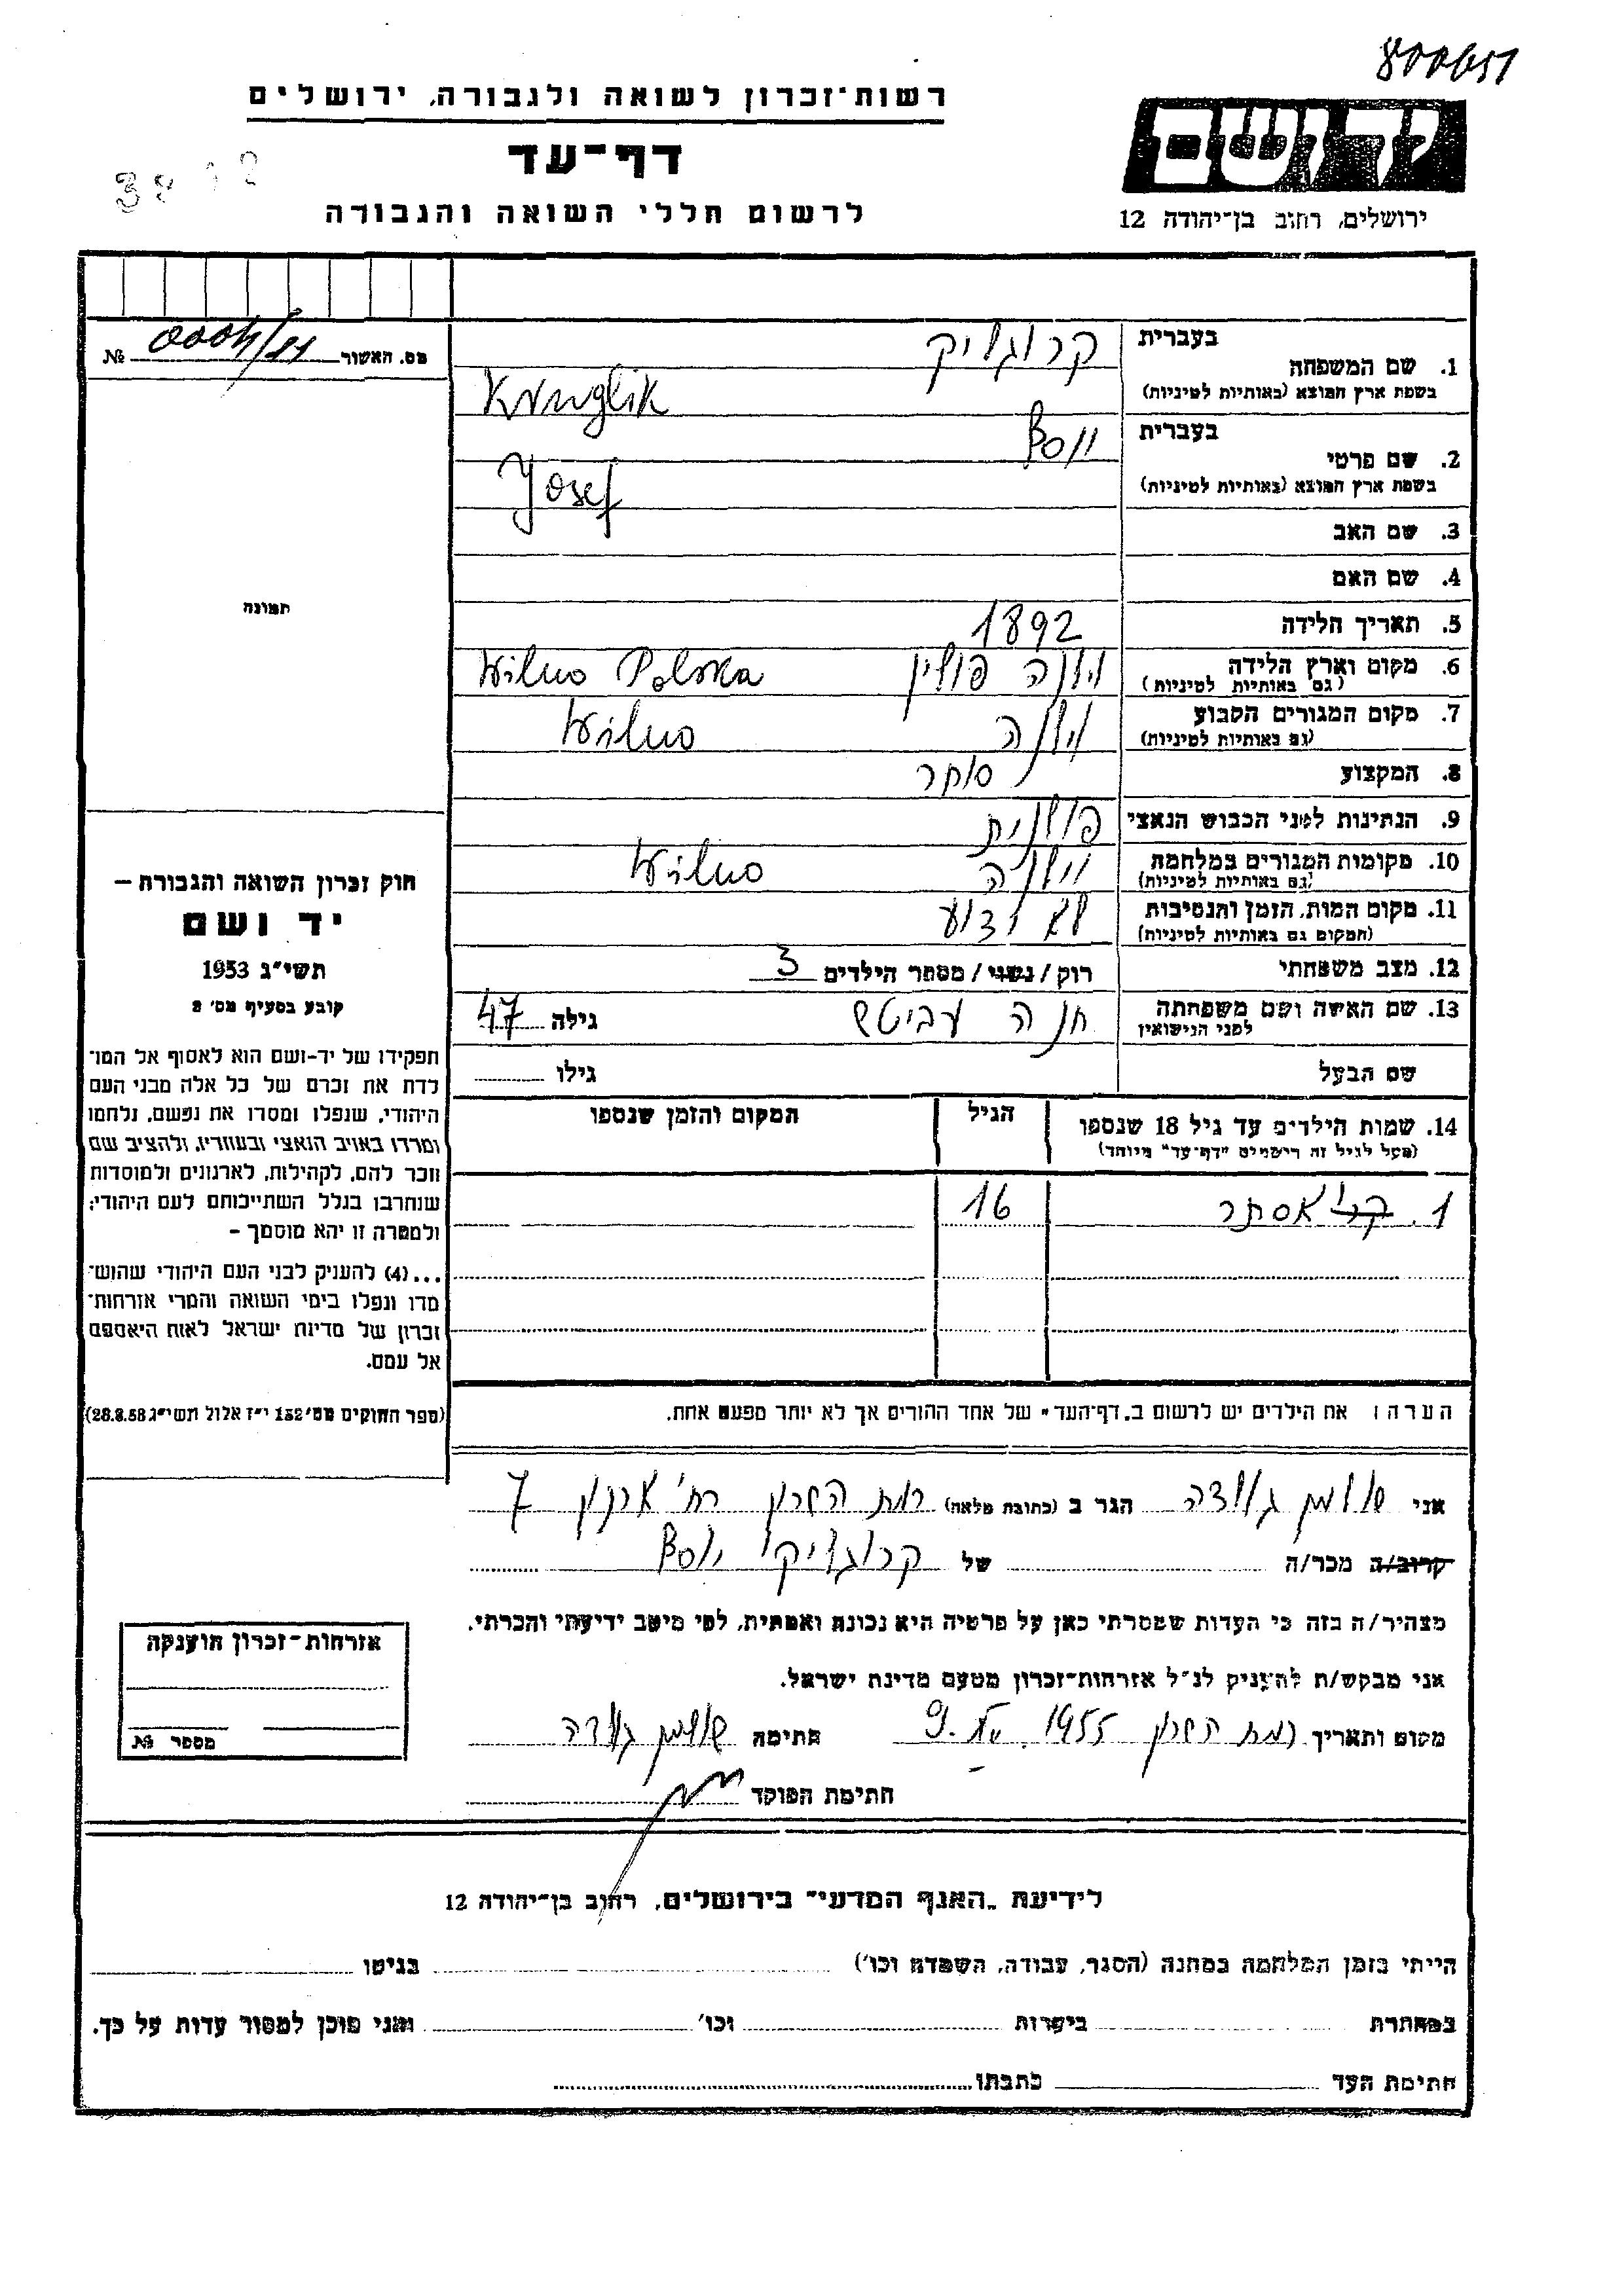 רשות־זכרון לשואה ולגבורה, ירושלים
דף־עד
לרשום חללי השואה והגבורה
ידושם
ירושלים, רחוב בן־יהודה 12
מס. האשור № 0004/11
תמונה
בעברית
1. שם המשפחה
בשפת ארץ המוצא (באותיות לטיניות)
קרוגליק
Kruglik
בעברית
2. שם פרטי
בשפת ארץ המוצא (באותיות לטיניות)
יוסף
Josef
3. שם האב
4. שם האם
5. תאריך הלידה 1892
6. מקום וארץ הלידה וילנה פולין Wilno Polska
(גם באותיות לטיניות)
7. מקום המגורים הקבוע וילנה Wilno
(גם באותיות לטיניות)
8. המקצוע סוחר
9. הנתינות לפני הכבוש הנאצי פולנית
10. מקומות המגורים במלחמה וילנה Wilno
(גם באותיות לטיניות)
11. מקום המות, הזמן והנסיבות לא ידוע
(המקום גם באותיות לטיניות)
12. מצב משפחתי רוק/נשוי/מספר הילדים 3
13. שם האשה ושם משפחתה חנה גילה 47
לפני הנישואין
שם הבעל גילו
14. שמות הילדים עד גיל 18 שנספו הגיל המקום והזמן שנספו
(מעל לגיל זה רישמים "דף־עד" מיוחד)
1. אסתר 16
הערה: את הילדים יש לרשום ב"דף־העד" של אחד ההורים אך לא יותר מפעם אחת.
חוק זכרון השואה והגבורה –
יד ושם
תשי"ג 1953
קובע בסעיף מס' 2
תפקידו של יד-ושם הוא לאסוף אל המו־
לדת את זכרם של כל אלה מבני העם
היהודי, שנפלו ומסרו את נפשם, נלחמו
ומרדו באויב הנאצי ובעוזריו, ולהציב שם
וזכר להם, לקהילות, לארגונים ולמוסדות
שנחרבו בגלל השתייכותם לעם היהודי;
ולמטרה זו יהא מוסמך –
...(4) להעניק לבני העם היהודי שהוש־
מדו ונפלו בימי השואה והמרי אזרחות־
זכרון של מדינת ישראל לאות היאספם
אל עמם.
(ספר החוקים מס' 132 י"ז אלול תשי"ג 28.8.53)
אני שולמן הגר ב (כתובת מלאה) רמת השרון רח' 7
קרוב/ה מכר/ה של קרוגליק יוסף
מצהיר/ה בזה כי העדות שמסרתי כאן על פרטיה היא נכונה ואמתית, לפי מיטב ידיעתי והכרתי.
אני מבקש/ת להעניק לנ"ל אזרחות־זכרון מטעם מדינת ישראל.
מקום ותאריך רמת השרון 1955 חתימה שולמן
חתימת הפוקד
אזרחות־זכרון הוענקה
מספר №
לידיעת "האגף המדעי" בירושלים, רחוב בן־יהודה 12
הייתי בזמן המלחמה במחנה (הסגר, עבודה, השמדה וכו') בגיטו
במחתרת ביערות וכו' ואני מוכן למסור עדות על כך.
חתימת העד כתבתו